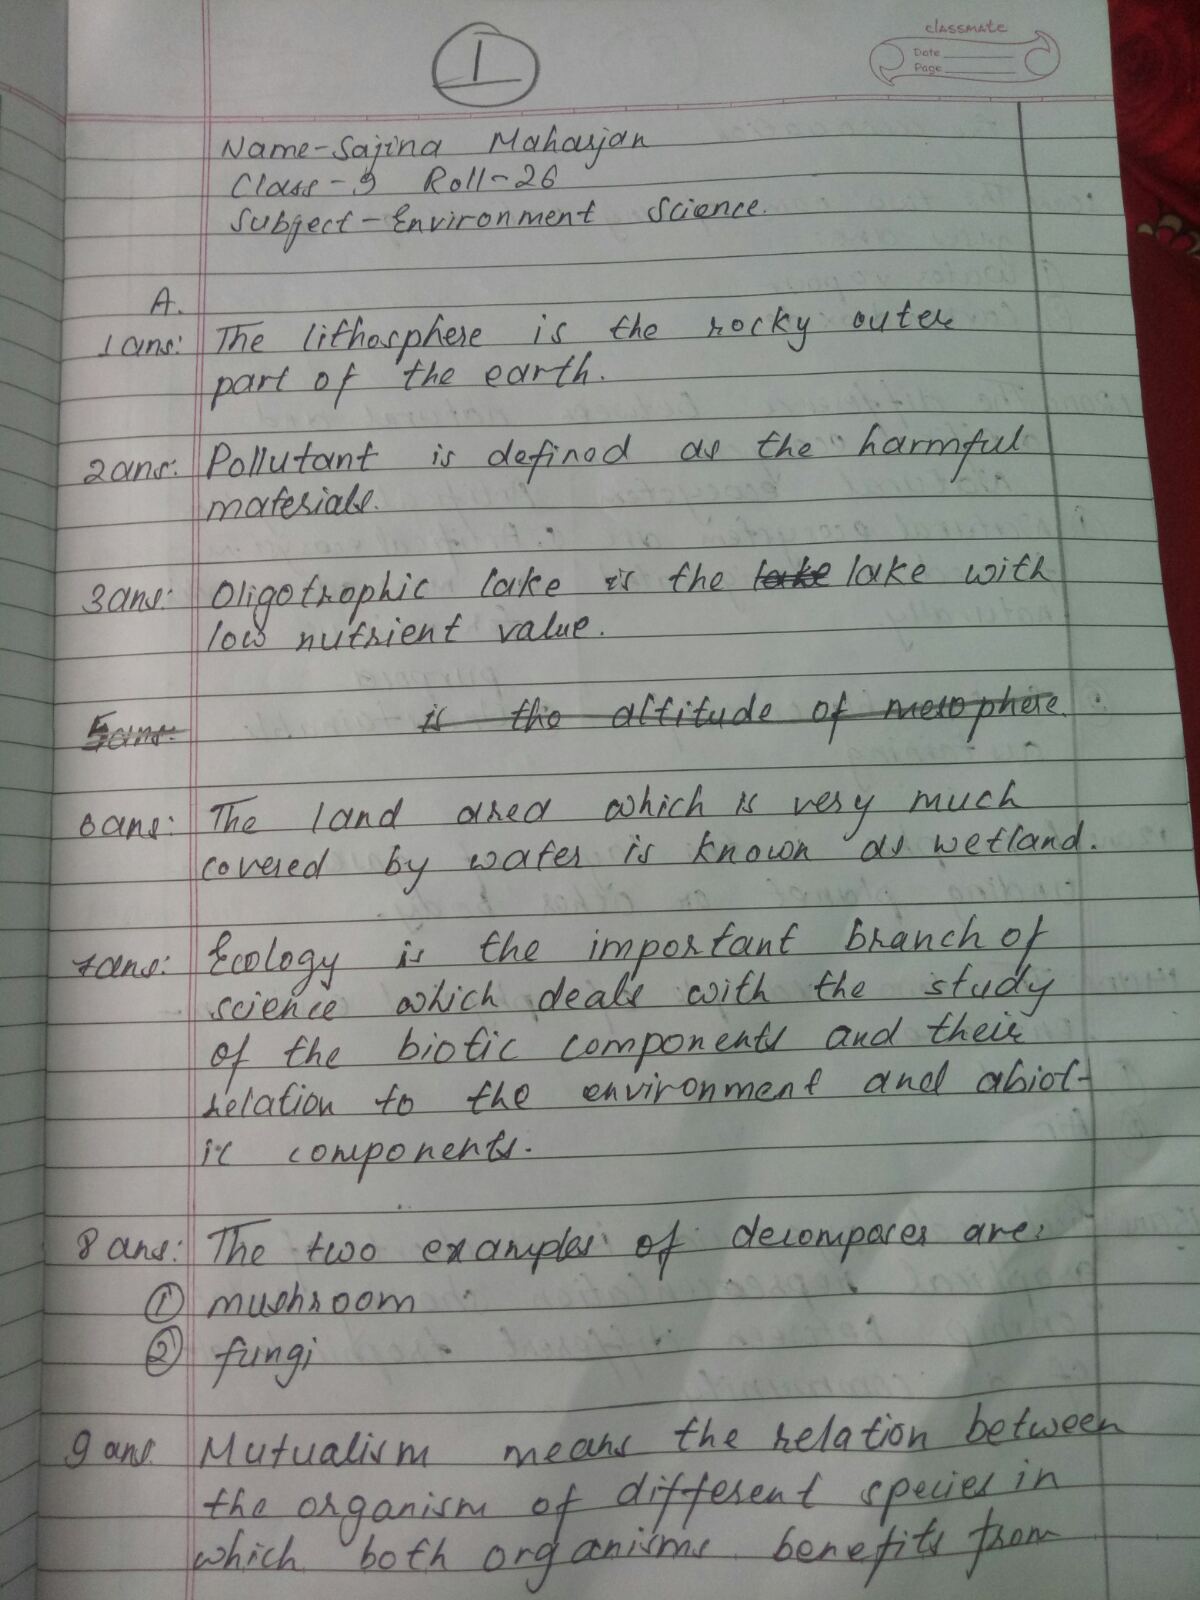 1
classmate
Date
Page
Name-Sajina Maharjan
Class-9 Roll-26
Subject-Environment Science.
A.
1ans: The lithosphere is the rocky outer
part of the earth.
2ans: Pollutant is defined as the harmful
materials.
3ans: Oligotrophic lake is the lake lake with
low nutrient value.
5ans: is the altitude of mesophere.
6ans: The land area which is very much
covered by water is known as wetland.
7ans: Ecology is the important branch of
science which deals with the study
of the biotic components and their
relation to the environment and abiot-
ic components.
8 ans: The two examples of decomposer are:
① mushroom
② fungi
9 ans. Mutualism means the relation between
the organism of different species in
which both organisms benefits from